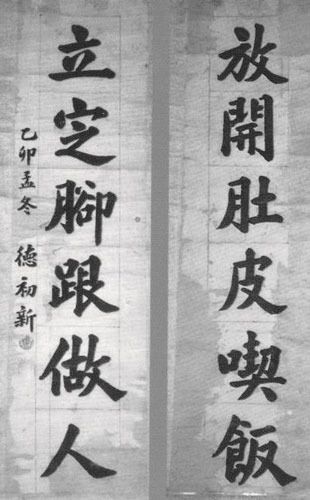 放開肚皮喫飯
立定腳跟做人
乙卯孟冬 德初新